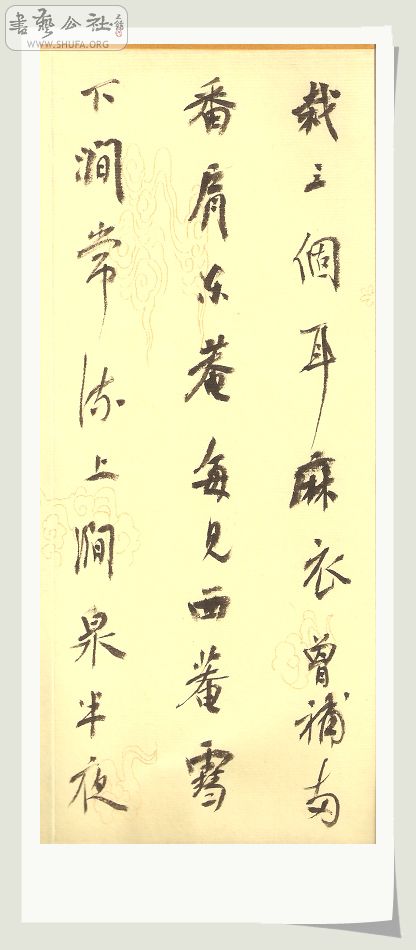 書藝公社
WWW.SHUFA.ORG
栽三個耳麻衣曾補兩
番肩東菴每見西菴雪
下澗常流上澗泉半夜